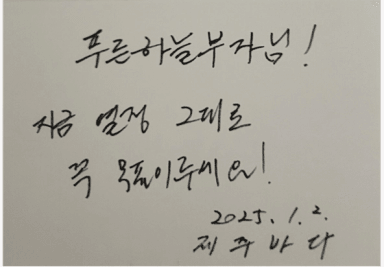 푸른하늘부자님!
지금 열정 그대로
꼭 목표이루세요!
2025. 1. 2.
제주바다